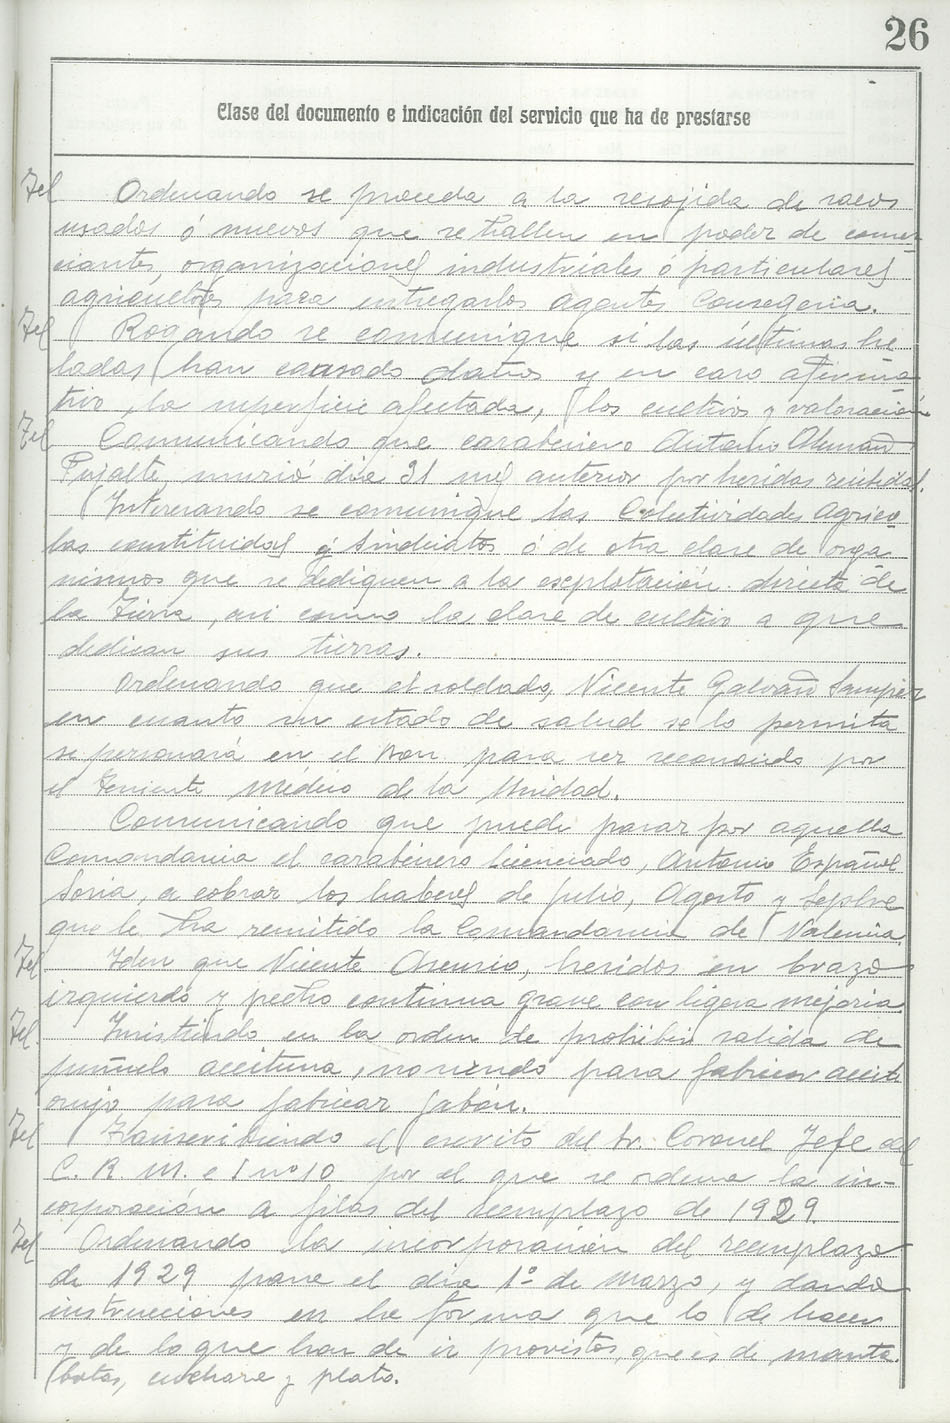 26
Clase del documento e indicación del servicio que ha de prestarse
Tel Ordenando se proceda a la recojida de sacos
usados ó nuevos que se hallen en poder de comer-
ciantes, organizaciones industriales ó particulares
agricultores para entregarlos agentes Consegeria.
Tel Rogando se comunique si las últimas he
ladas han causado daños y en caso afirma
tivo, la superficie afectada, los cultivos y valoración
Tel Comunicando que carabinero Antonio Alemañ
Pujalte, murió dia 31 mes anterior por heridas recibidas.
Interesando se comunique las Colectividades Agrico
las constituidas y Sindicatos ó de otra clase de orga
nismos que se dediquen a la esplotación directa de
la Tierra, asi como la clase de cultivo a que
dedican sus tierras.
Ordenando que el soldado, Vicente Galvañ Semper
en cuanto su estado de salud se lo permita
se personará en el Bon para ser reconocido por
el Teniente Médico de la Unidad.
Comunicando que puede pasar por aquella
Comandancia el carabinero licenciado, Antonio Español
Soria, a cobrar los haberes de julio, Agosto y Sepbre
que le ha remitido la Comandancia de Valencia.
Tel Iden que Vicente Asensio, heridos en brazo
izquierdo y pecho continua grave con ligera mejoria
Tel. Insistiendo en la orden de prohibir salida de
aceituna, para fabricar aceite
orujo para fabricar jabón.
Tel Transcribiendo el escrito del Sr. Coronel Jefe del
C. R. M. e I nº 10 por el que se ordena la in-
corporación a filas del reemplazo de 1929.
Tel Ordenando la incorporación del reemplazo
de 1929 para el dia 1º de Marzo, y dando
instrucciones en la forma que lo de hacer
y de lo que han de ir provistos, que es de manta
botas, cuchara y plato.